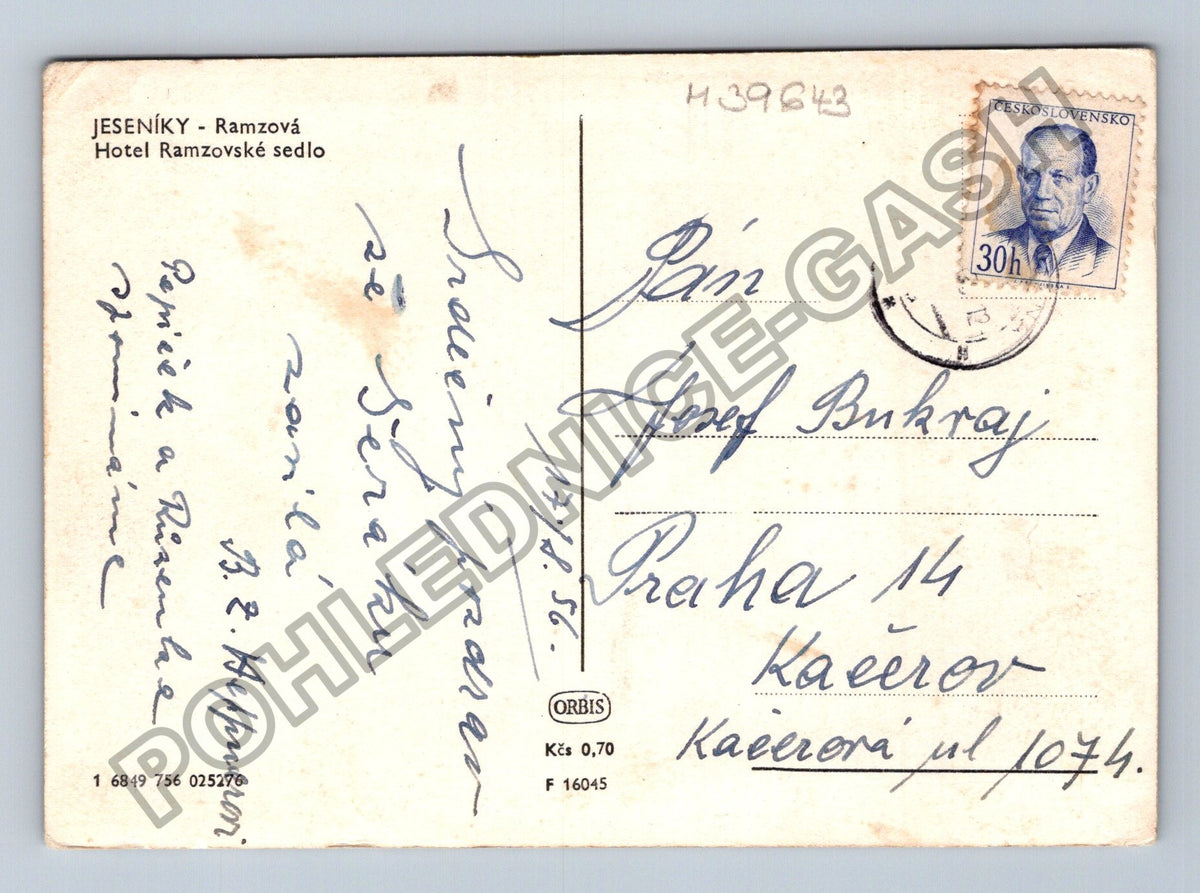 JESENÍKY - Ramzová
Hotel Ramzovské sedlo
H 39643
ČESKOSLOVENSKO
30h
17/8. 56.
Srdečný pozdrav
ze Šeráku
zasílá
B. Z.
Pepíček a Růženka
vzpomínáme
Pán
Josef Bukraj
Praha 14
Kačerov
Kačerová ul 1074.
ORBIS
Kčs 0,70
F 16045
1 6849 756 025276
POHLEDNICE-GASH